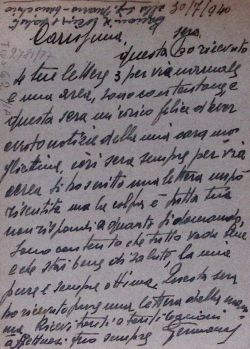 30/7/940
Carissima,
questa sera ho ricevuto
4 tue lettere 3 per via normale
e una aerea, sono contentone e
questa sera mi corico felice d'aver
avuto notizie della mia cara mo
gliettina, ieri sera sempre per via
aerea ti ho scritto una lettera un pò
risentita ma la colpa è tutta tua
non rispondi a quanto ti domando,
sono contento che tutto vada bene
e che stai bene di salute, la mia
pure è sempre ottima. Questa sera
ho ricevuto pure una lettera della mam
ma. Ricevi tanti e tanti bacioni
affettuosi tuo sempre Germano